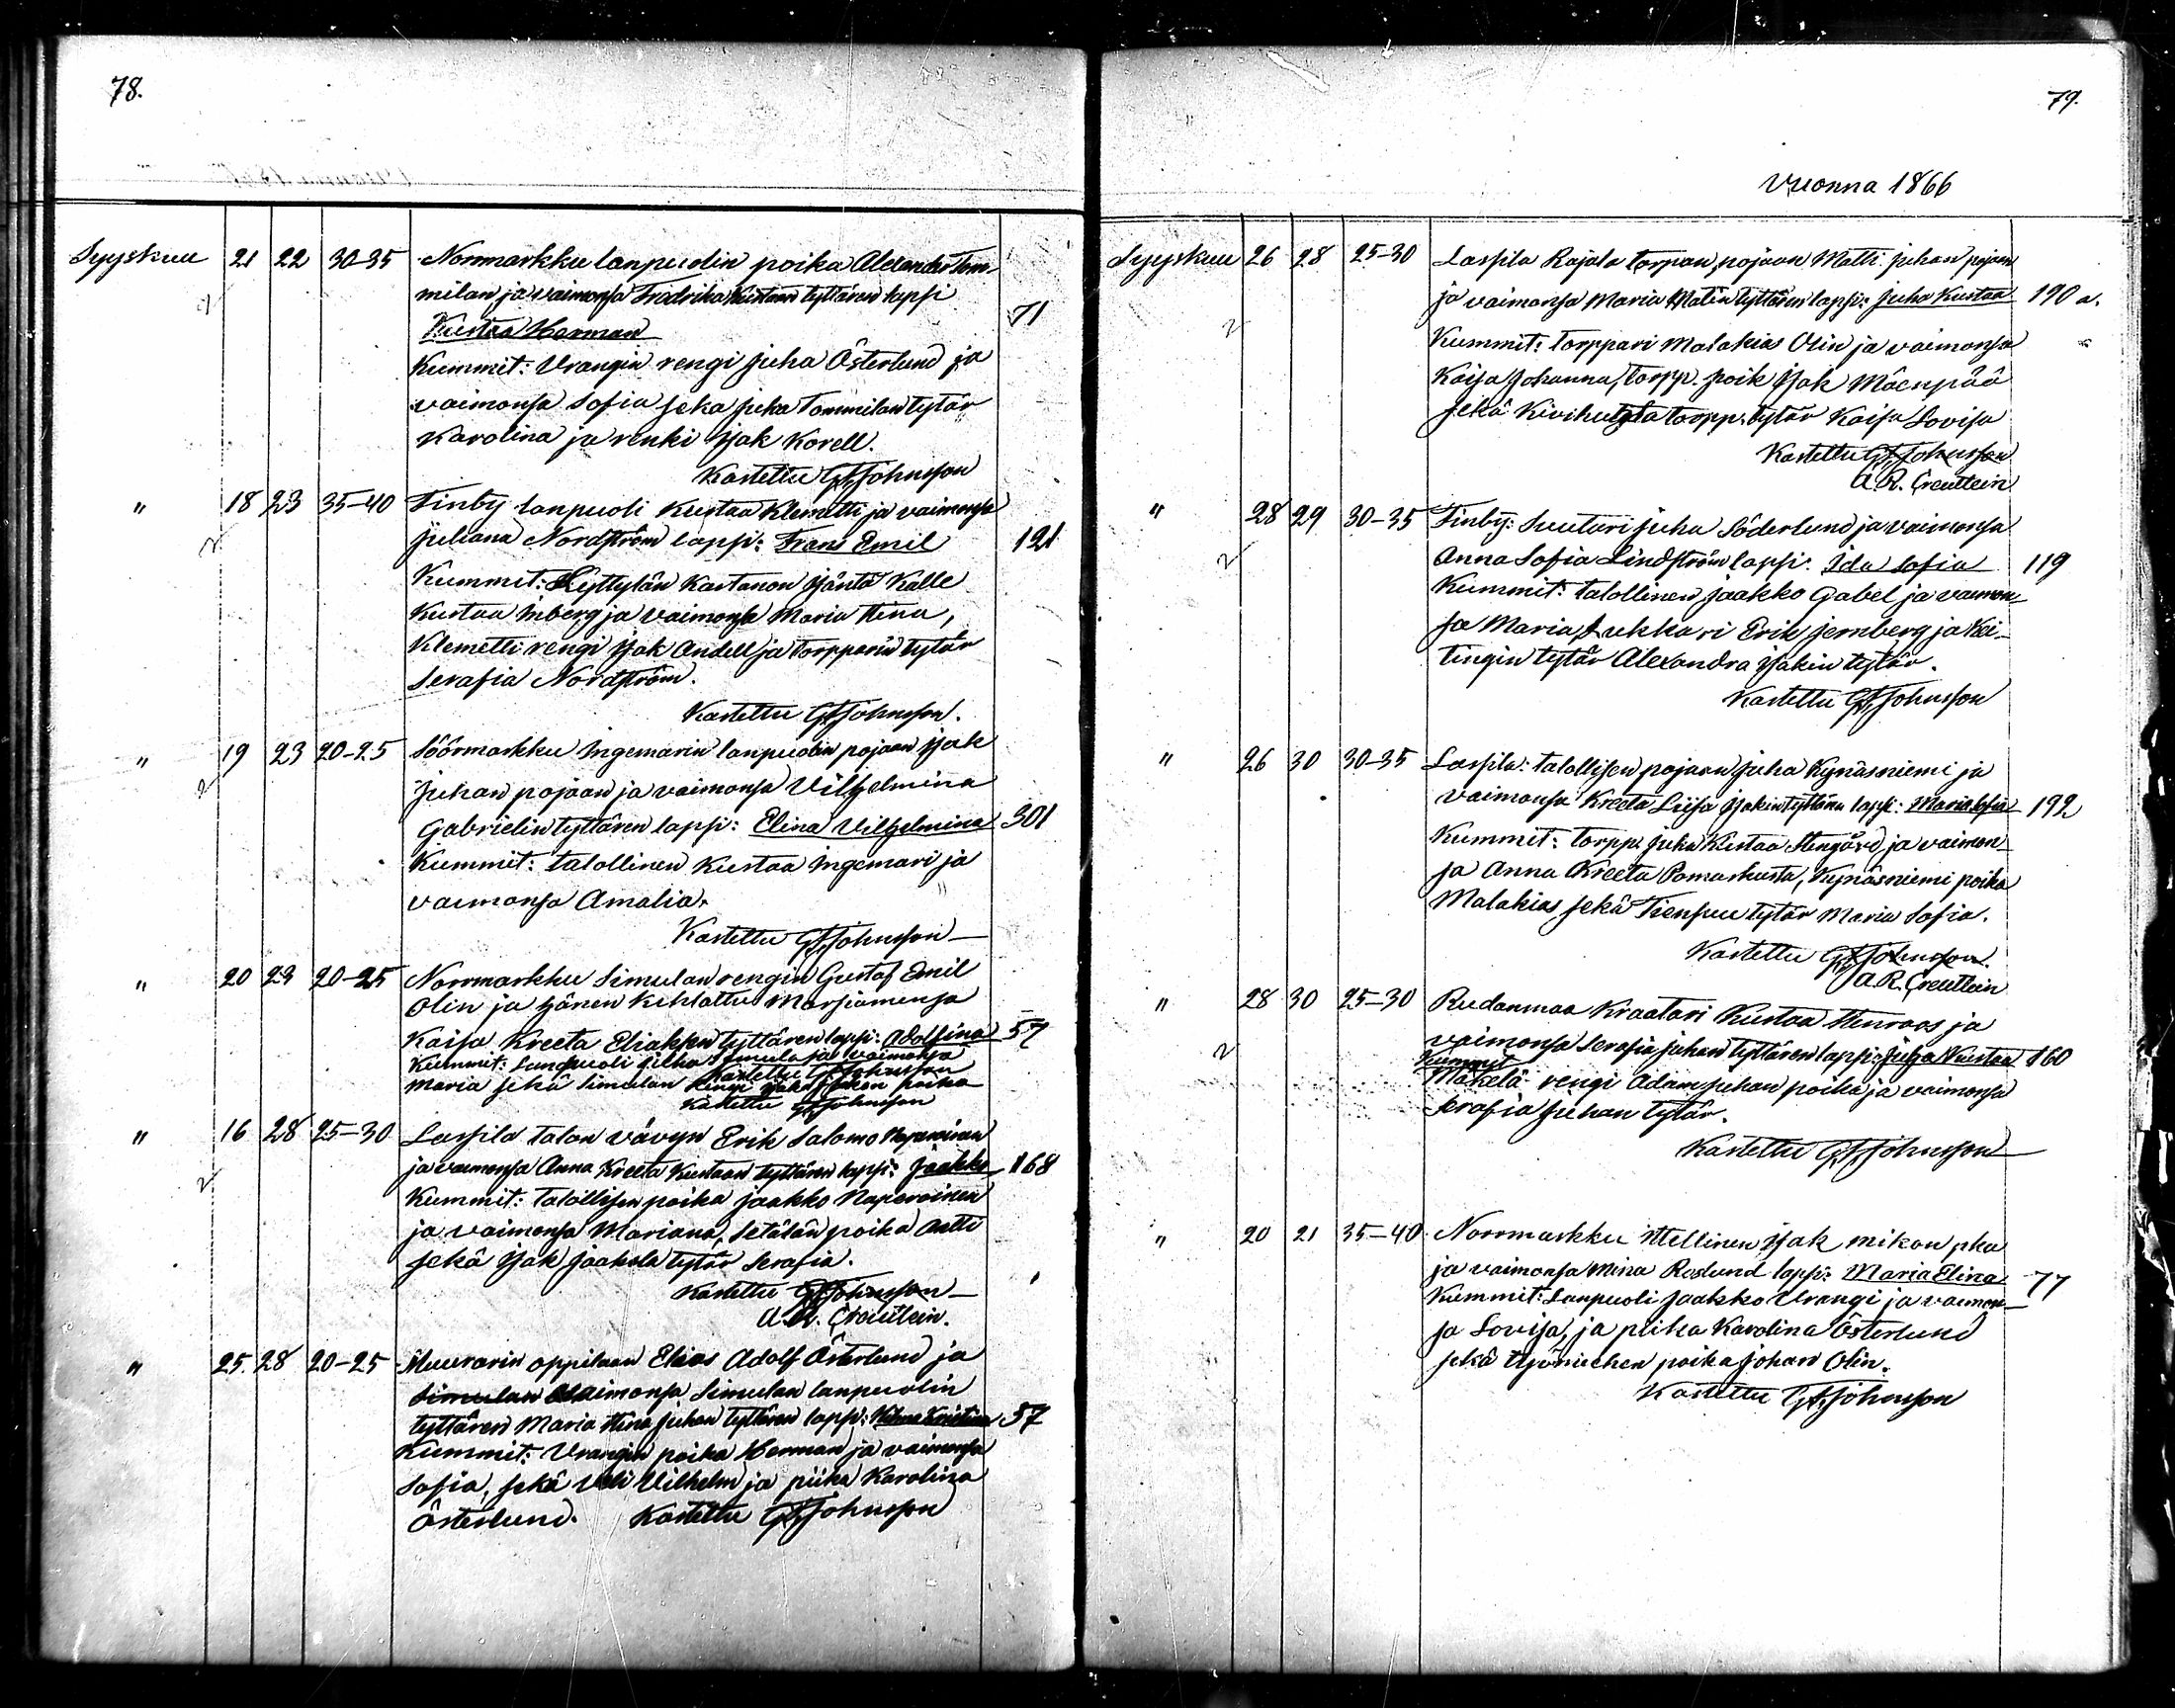 78.
Syyskuu 21 22 30-35 Norrmarkku lanpuolin poika Alexander Tom-
milan ja vaimonsa Fredrika Kustaan tyttären lapsi 71
Kustaa Herman
Kummit: Vrangin rengi Juha Österlund ja
vaimonsa Sofia seka Juha Tommilan tytär
Karolina ja renki Isak Korell.
Kastettu G. F. Johnsson
" 18 23 35-40 Finby lanpuoli Kustaa Klemetti ja vaimonsa
Juliana Nordström lapsi: Frans Emil 121
Kummit: Lyttylän Kartanon Isäntä Kalle
Kustaa Inberg ja vaimonsa Maria Stina,
Klemetti rengi Isak Andell ja torpparin tytär
Serafia Nordström.
Kastettu G. F. Johnsson.
" 19 23 20-25 Söörmarkku Ingemarin lanpuolin pojaan Isak
Juhan pojaan ja vaimonsa Vilhelmina
Gabrielin tyttären lapsi: Elina Vilhelmina 301
Kummit: talollinen Kustaa Ingemari ja
vaimonsa Amalia.
Kastettu G. F. Johnsson
" 20 23 20-25 Norrmarkku Simulan rengin Gustaf Emil
Olin ja hänen kihlattu Morsiamensa
Kaisa Kreeta Eliakken tyttären lapsi: Adolfina 57
Kummit: Lanpuoli Simula ja vaimonsa
Kastettu G. F. Johnsson
Maria sekä Simulan rengi poika
Kastettu G. F. Johnsson
" 16 28 25-30 Lassila talon vävyn Erik Salomo
ja vaimonsa Anna Kreeta Kustaan tyttären lapsi: Jaakko 168
Kummit: talollisen poika Jaakko Naparoinen
ja vaimonsa Mariana, Setälän poika Antti
sekä Isak Jaakola tytär Serafia.
Kastettu G. F. Johnsson
A. R. Creutlein.
" 25. 28 20-25 Muurarin oppilaan Elias Adolf Österlund ja
Simulan vaimonsa Simulan lanpuolin
tyttären Maria Stina Juhan tyttären lapsi: 57
Kummit: Vrangin poika Herman ja vaimonsa
Sofia, sekä Veli Vilhelm ja piika Karolina
Österlund. Kastettu G. F. Johnsson
79.
Vuonna 1866
Syyskuu 26 28 25-30 Lassila Rajala torpan pojaan Matti Juhan pojaan
ja vaimonsa Maria Matin tyttären lapsi: Juha Kustaa 190 a.
Kummit: torppari Malakias Olin ja vaimonsa
Kaisa Johanna, torpp. poik Isak Mäenpää
sekä torpp. tytär Kaisa Lovisa
Kastettu G. F. Johnsson
A. R. Creutlein
" 28 29 30-35 Finby: Suutari Juha Söderlund ja vaimonsa
Anna Sofia Lindström lapsi. Ida Sofia 119
Kummit: talollinen Jaakko Gabel ja vaimon-
sa Maria, Lukkari Erik Jernberg ja Kei-
tingin tytär Alexandra Isakin tytär.
Kastettu G. F. Johnsson
" 26 30 30-35 Lassila: talollisen pojaan Juha Kynäsniemi ja
vaimonsa Kreeta Liisa Isakin tyttären lapsi: Maria Sofia 192
Kummit: torpp. Juha Kustaa Stengård ja vaimon-
sa Anna Kreeta Pomarkusta, Kynäsniemi poika
Malakias sekä Tiensuu tytär Maria Sofia.
Kastettu G. F. Johnsson.
A. R. Creutlein
" 28 30 25-30 Rudanmaa Kraatari Kustaa Stenroos ja
vaimonsa Serafia Juhan tyttären lapsi: Juha Kustaa 160
Kummit
Mäkelä rengi Adam Juhan poika ja vaimonsa
Serafia Juhan tytär.
Kastettu G. F. Johnsson
" 20 21 35-40 Norrmarkku Ittellinen Isak Mikon pka
ja vaimonsa Mina Roslund lapsi: Maria Elina 77
Kummit: Lanpuoli Jaakko Vrangi ja vaimon-
sa Lovisa, ja piika Karolina Österlund
sekä poika Johan Olin.
Kastettu G. F. Johnsson